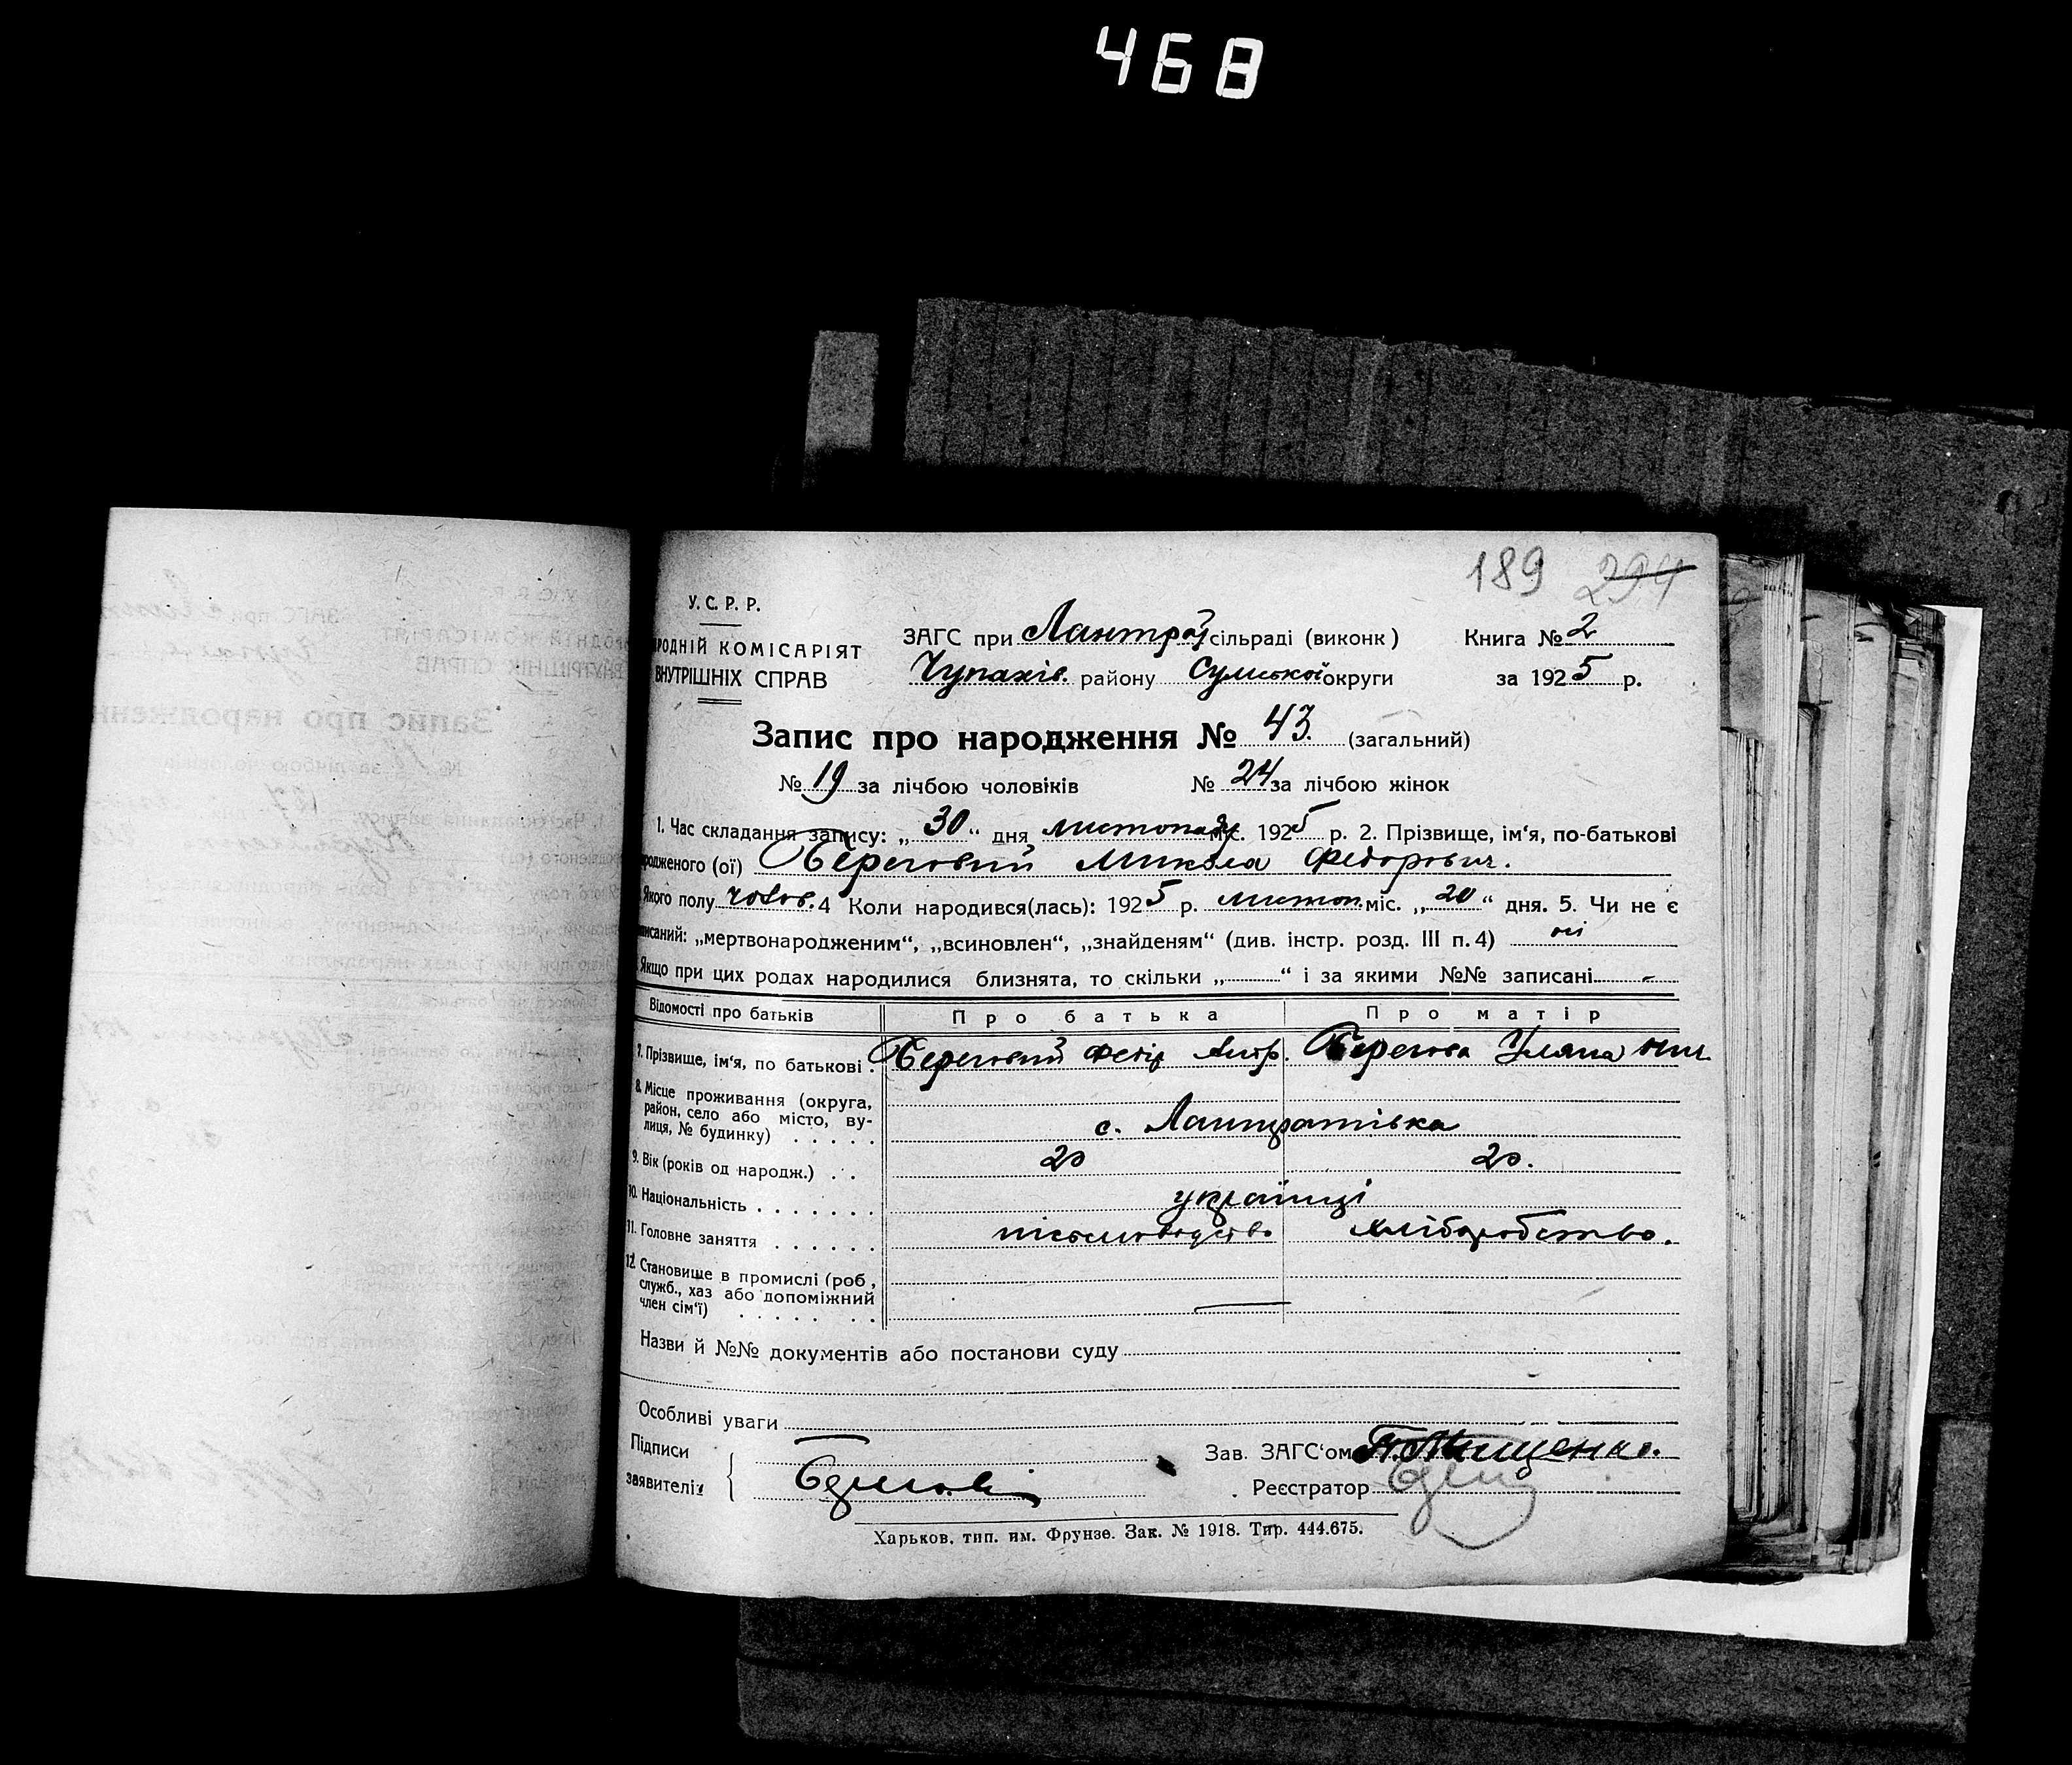 468
189 294
У. С. Р. Р.
РОДНІЙ КОМІСАРІЯТ
ВНУТРІШНІХ СПРАВ
ЗАГС при сільраді (виконк) Книга № 2
Чупахів. району Сумської округи за 1925 р.
Запис про народження № 43. (загальний)
№ 19 за лічбою чоловіків № 24 за лічбою жінок
1. Час складання запису: „30“ дня листопаду міс. 1925 р. 2. Прізвище, ім‘я, по-батькові
родженого (ої) Береговий Микола Федорович.
Якого полу чолов. 4 Коли народився(лась): 1925 р. листоп. міс. „20“ дня. 5. Чи не є
писаний: „мертвонародженим“, „всиновлен“, „знайденям“ (див. інстр. розд. III п. 4) ні
Якщо при цих родах народилися близнята, то скільки „ “ і за якими №№ записані -
Відомості про батьків Про батька Про матір
7. Прізвище, ім‘я, по батькові . Береговий Федір Берегова Уляна
8. Місце проживання (округа,
район, село або місто, ву-
лиця, № будинку) . . . . .
с. Лантратівка
9. Вік (років од народж.) . . 20 20.
10. Національність . . . . . . . українці
11. Головне заняття . . . . . . письмоводство хліборобство.
12. Становище в промислі (роб,
служб., хаз або допоміжний
член сім‘ї) . . . . . . .
Назви й №№ документів або постанови суду
Особливі уваги
Підписи
заявителів
Зав. ЗАГС‘ом П. Мищенко.
Реєстратор
Харьков, тип. им. Фрунзе. Зак. № 1918. Тир. 444.675.